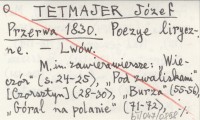 O TETMAJER Józef
Przerwa 1830. Poezye lirycz-
ne. — Lwów.
M.in. zaw. wiersze: "Wie-
czór" (s. 24-25), "Pod zwaliskami"
[Czorsztyn] (28-30), "Burza" (55-56),
"Góral na polanie" (71-72),